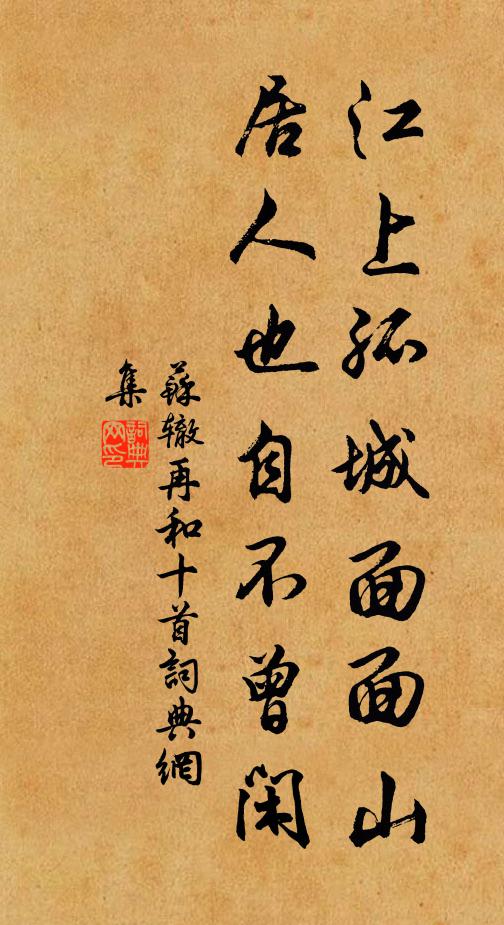 江上孤城面面山
居人也自不曾閑
蘇轍再和十首詞典網
集
詞典
网印